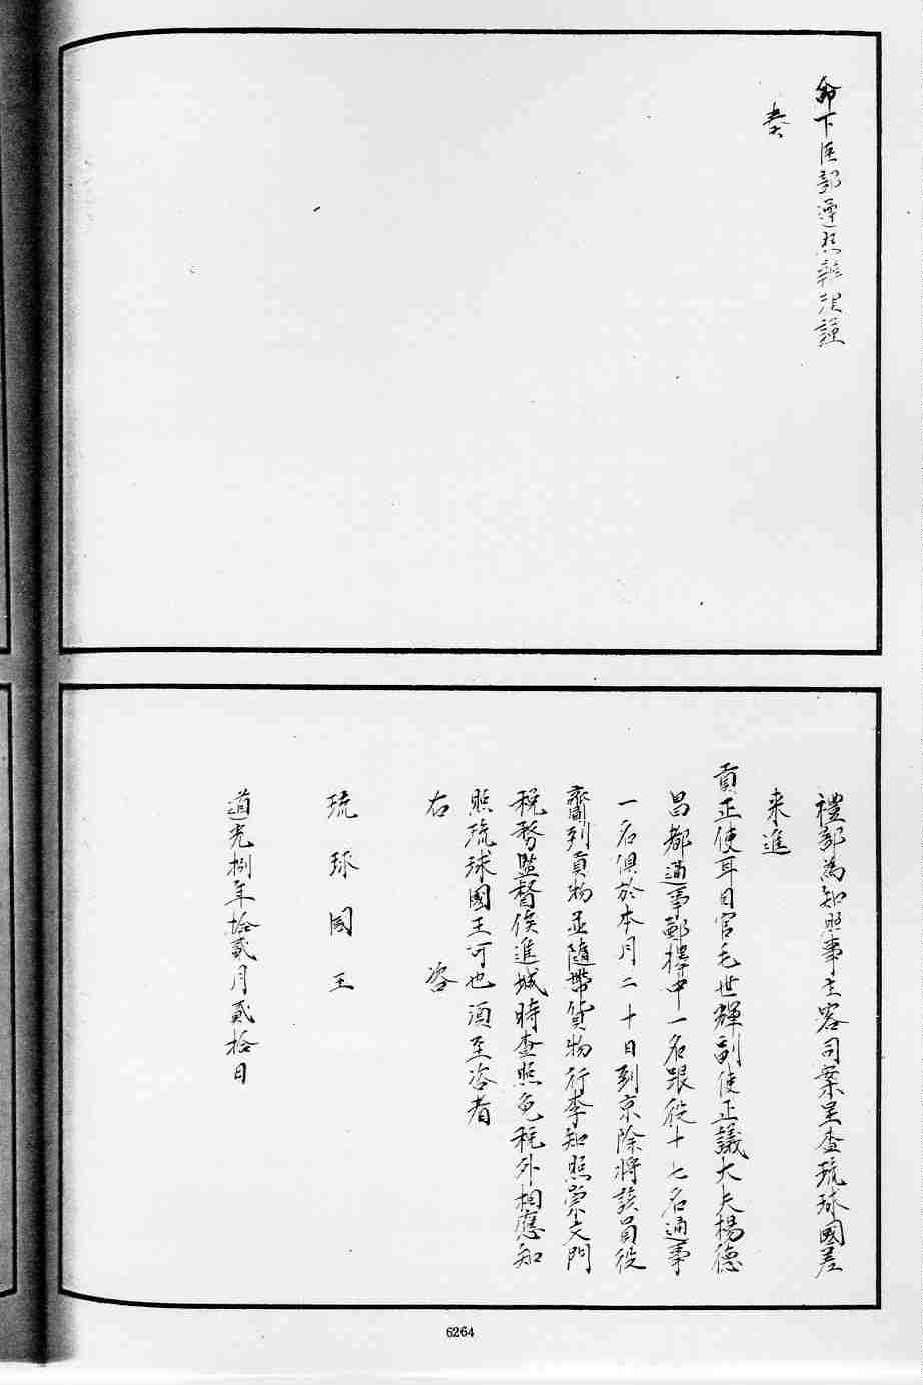 命下臣部遵照辦理謹
奏
禮部為知照事主客司案呈查琉球國差
来進
貢正使耳目官毛世輝副使正議大夫楊德
昌都通事鄭擇中一名跟伇十七名通事
一名俱於本月二十日到京除將該員伇
齎到貢物並隨帶貨物行李知照崇文門
稅務監督俟進城時查照免稅外相應知
照琉球國王可也須至咨者
右咨
琉球國王
道光捌年拾貳月貳拾日
6264